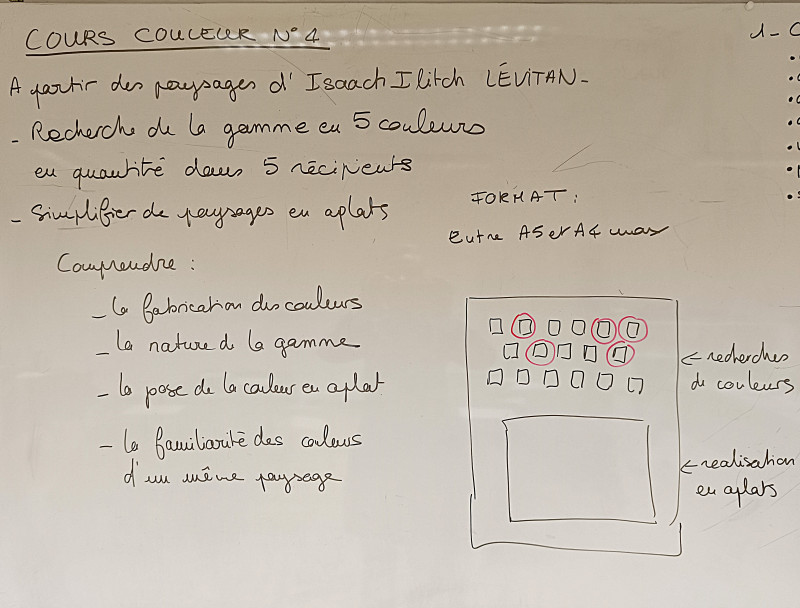 COURS COULEUR N° 4
A partir des paysages d'Isaach Ilitch LÉVITAN -
- Recherche de la gamme en 5 couleurs
en quantité dans 5 récipients
- Simplifier de paysages en aplats
FORMAT :
Entre A5 et A4 max
Comprendre :
- la fabrication des couleurs
- la nature de la gamme
- la pose de la couleur en aplat
- la familiarité des couleurs
d'un même paysage
← recherches
de couleurs
← realisation
en aplats
1 - C